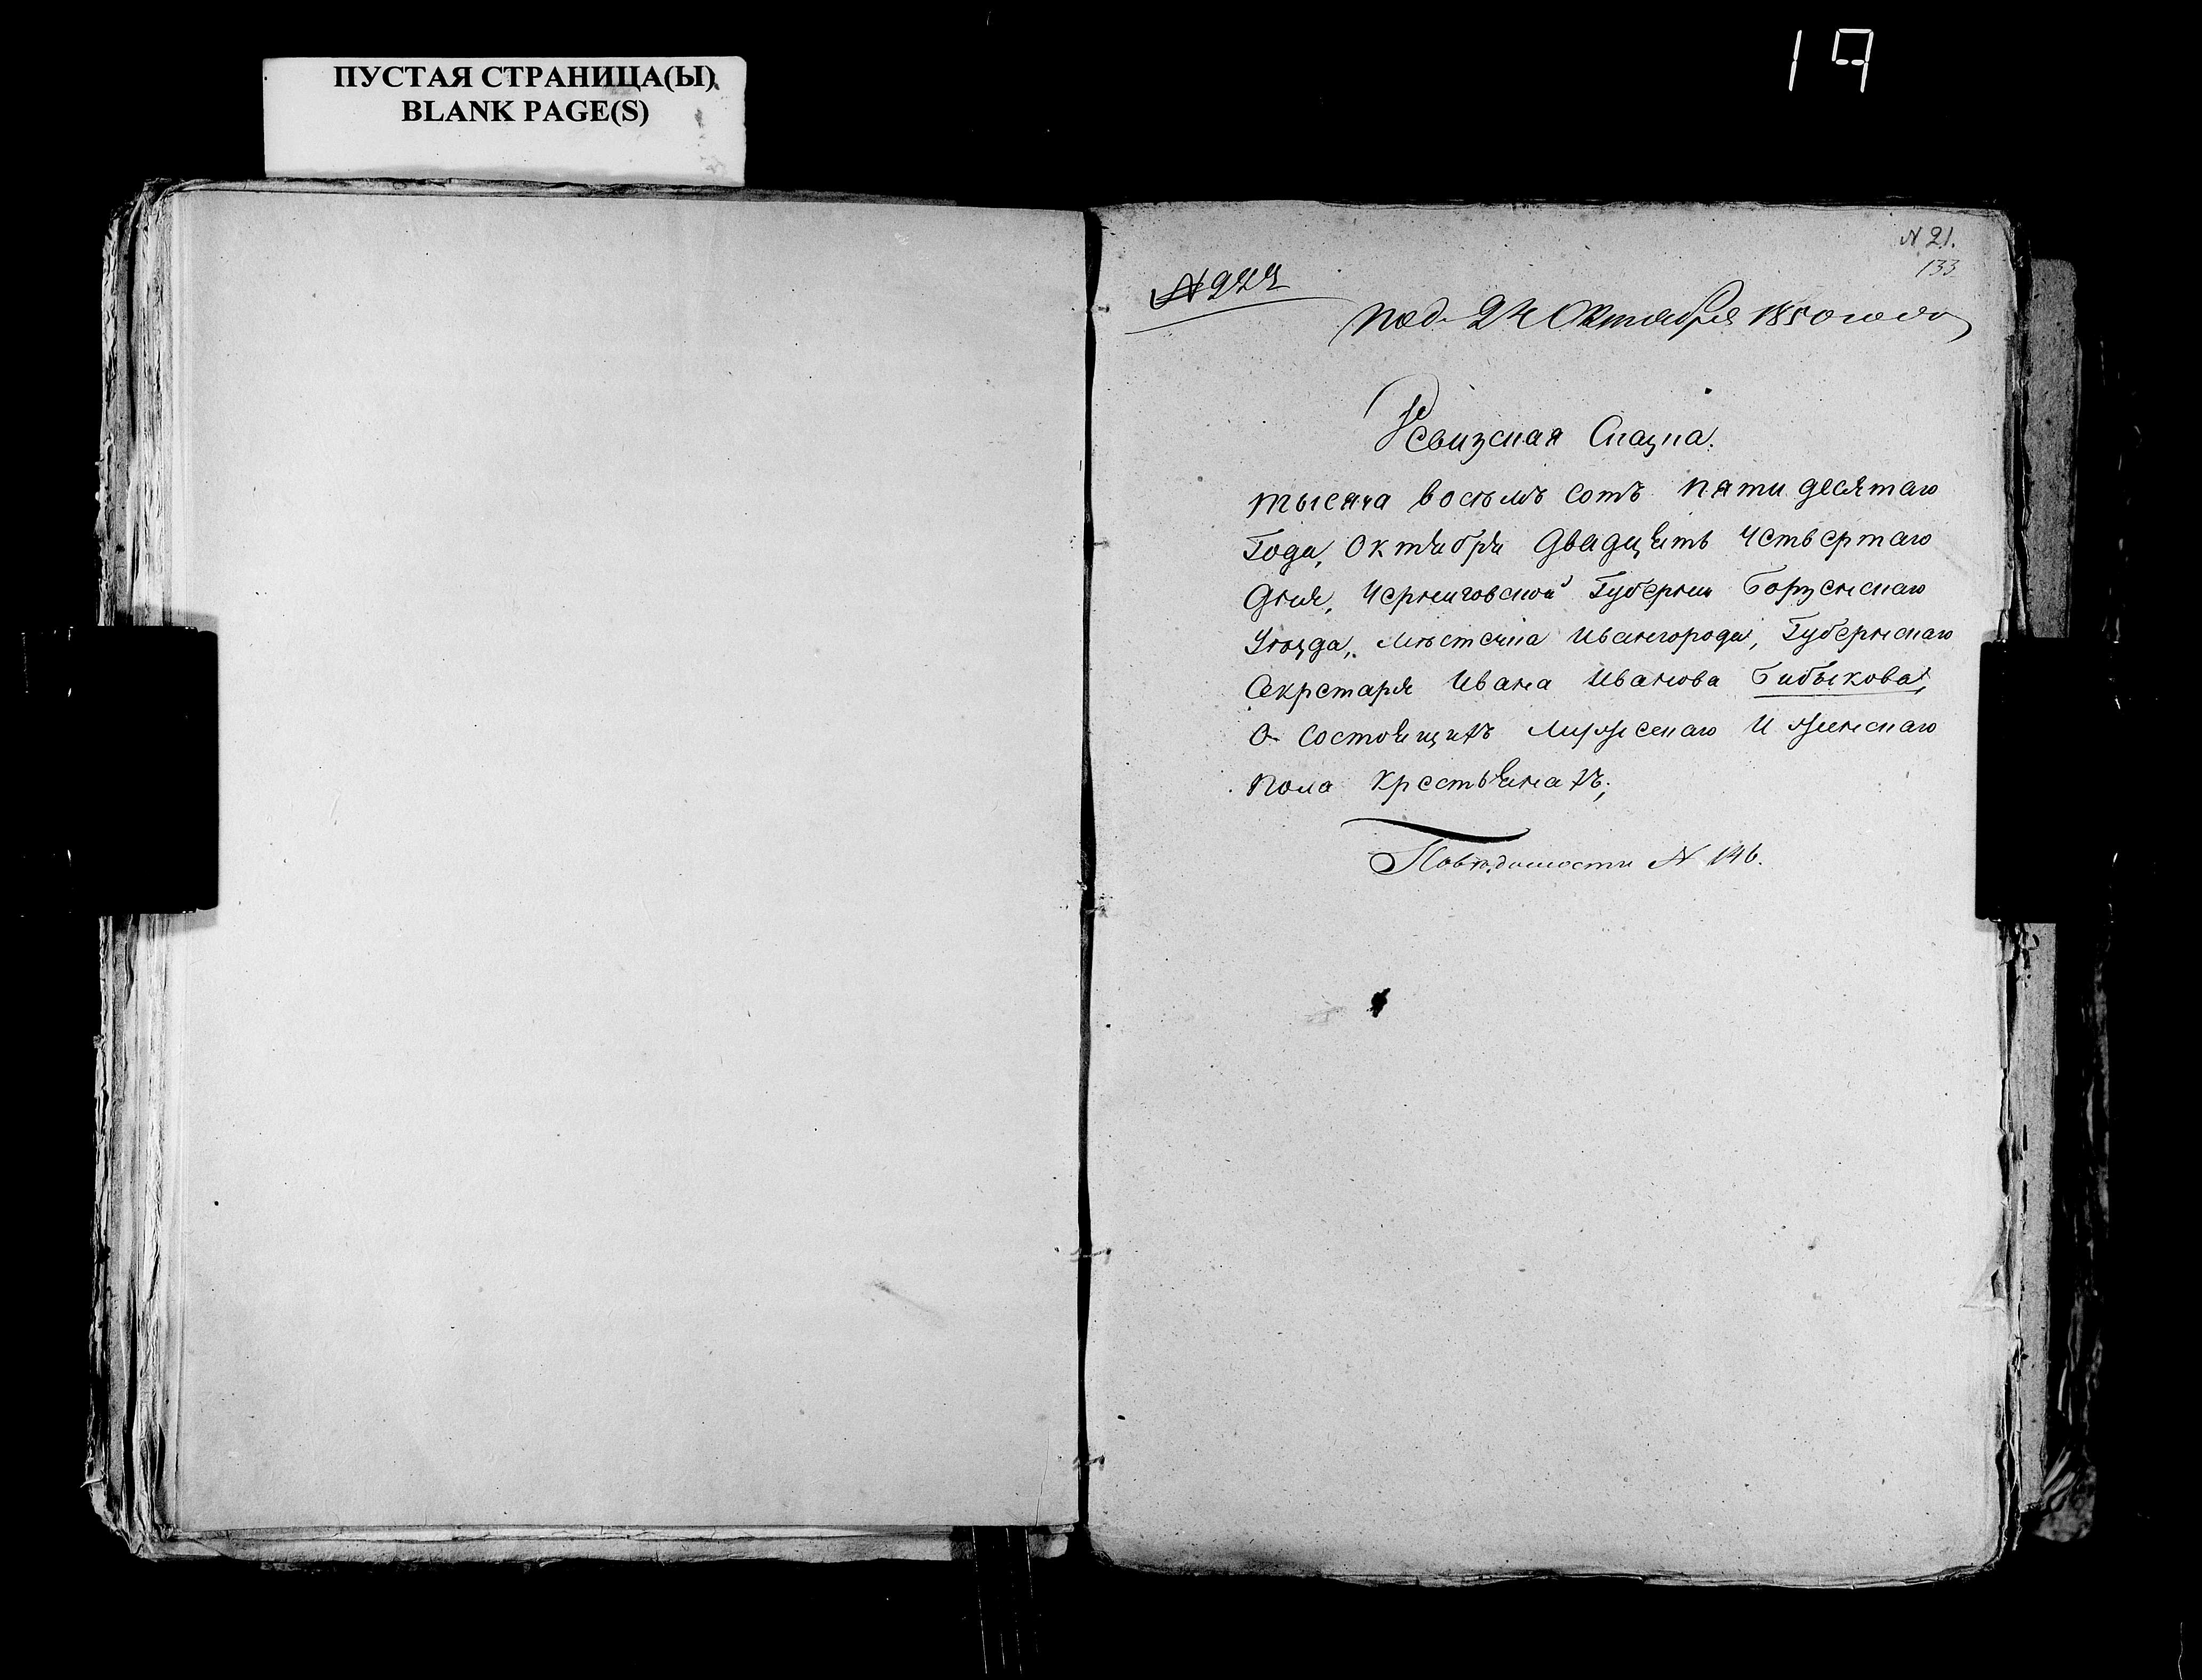 ПУСТАЯ СТРАНИЦА(Ы)
BLANK PAGE(S)
19
N 21.
133
под. 24 Октября 1850 года
Ревизская Сказка.
тысяча восемь сотъ пяти десятаго
Года, Октября двадцять четвертаго
дня, Черниговской Губернии Борзенскаго
Уѣзда, Мѣстечка Ивангорода, Губернскаго
Секретаря Ивана Иванова Бибикова,
О Состоящихъ Мужескаго И женскаго
пола Крестьянахъ;
Повѣдомости N 146.